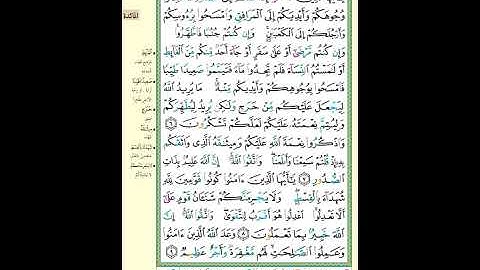 وُجُوهَكُمْ وَأَيْدِيَكُمْ إِلَى ٱلْمَرَافِقِ وَٱمْسَحُوا۟ بِرُءُوسِكُمْ
وَأَرْجُلَكُمْ إِلَى ٱلْكَعْبَيْنِ وَإِن كُنتُمْ جُنُبًا فَٱطَّهَّرُوا۟
وَإِن كُنتُم مَّرْضَىٰٓ أَوْ عَلَىٰ سَفَرٍ أَوْ جَآءَ أَحَدٌ مِّنكُم مِّنَ ٱلْغَآئِطِ
أَوْ لَٰمَسْتُمُ ٱلنِّسَآءَ فَلَمْ تَجِدُوا۟ مَآءً فَتَيَمَّمُوا۟ صَعِيدًا طَيِّبًا
فَٱمْسَحُوا۟ بِوُجُوهِكُمْ وَأَيْدِيكُم مِّنْهُ مَا يُرِيدُ ٱللَّهُ
لِيَجْعَلَ عَلَيْكُم مِّنْ حَرَجٍ وَلَٰكِن يُرِيدُ لِيُطَهِّرَكُمْ
وَلِيُتِمَّ نِعْمَتَهُۥ عَلَيْكُمْ لَعَلَّكُمْ تَشْكُرُونَ ٦
وَٱذْكُرُوا۟ نِعْمَةَ ٱللَّهِ عَلَيْكُمْ وَمِيثَٰقَهُ ٱلَّذِى وَاثَقَكُم
بِهِۦٓ إِذْ قُلْتُمْ سَمِعْنَا وَأَطَعْنَا وَٱتَّقُوا۟ ٱللَّهَ إِنَّ ٱللَّهَ عَلِيمٌۢ بِذَاتِ
ٱلصُّدُورِ ٧ يَٰٓأَيُّهَا ٱلَّذِينَ ءَامَنُوا۟ كُونُوا۟ قَوَّٰمِينَ لِلَّهِ
شُهَدَآءَ بِٱلْقِسْطِ وَلَا يَجْرِمَنَّكُمْ شَنَـَٔانُ قَوْمٍ عَلَىٰٓ
أَلَّا تَعْدِلُوا۟ ٱعْدِلُوا۟ هُوَ أَقْرَبُ لِلتَّقْوَىٰ وَٱتَّقُوا۟ ٱللَّهَ إِنَّ
ٱللَّهَ خَبِيرٌۢ بِمَا تَعْمَلُونَ ٨ وَعَدَ ٱللَّهُ ٱلَّذِينَ ءَامَنُوا۟
وَعَمِلُوا۟ ٱلصَّٰلِحَٰتِ لَهُم مَّغْفِرَةٌ وَأَجْرٌ عَظِيمٌ ٩